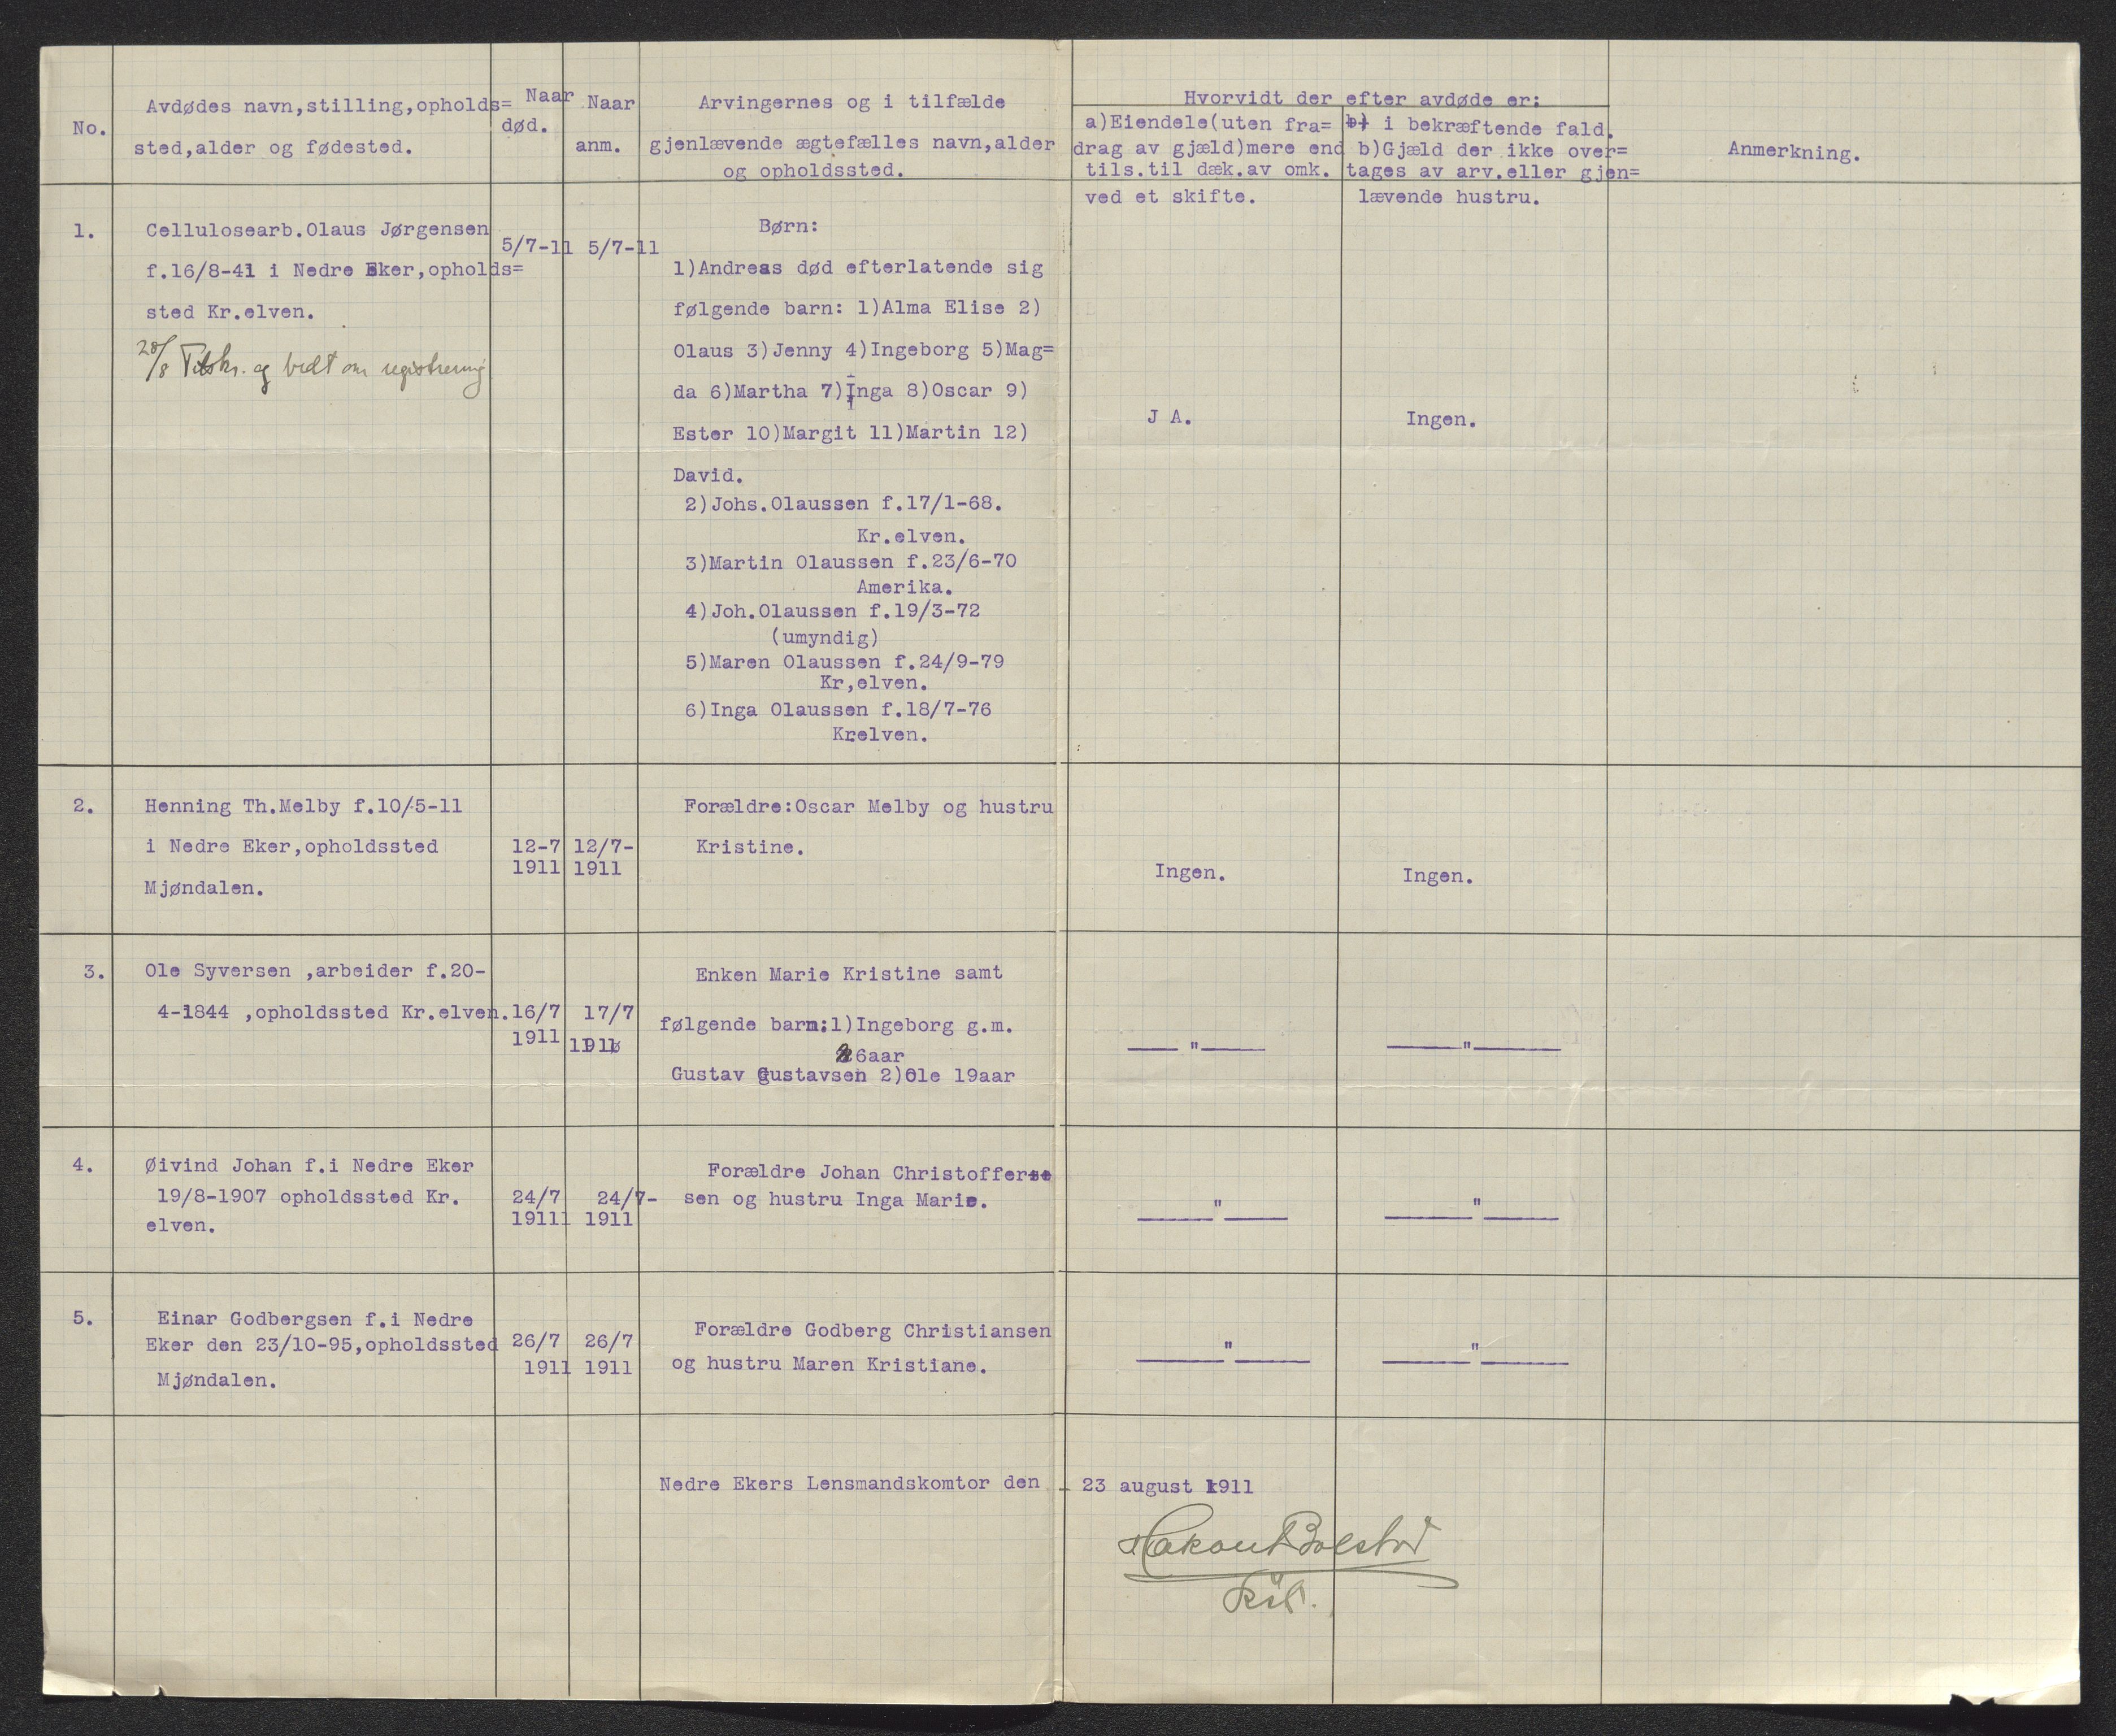 No.
Avdødes navn,stilling,opholds=
sted,alder og fødested.
Naar
død.
Naar
anm.
Arvingernes og i tilfælde
gjenlævende ægtefælles navn,alder
og opholdssted.
Hvorvidt der efter avdøde er:
a)Eiendele(uten fra=
drag av gjæld)mere end
tils.til dæk.av omk.
ved et skifte.
b) i bekræftende fald.
b)Gjæld der ikke over=
tages av arv.eller gjen=
lævende hustru.
Anmerkning.
1.
Cellulosearb.Olaus Jørgensen
f.16/8-41 i Nedre Eker,opholds=
sted Kr.elven.
28/8 Tilskr. og bedt om registrering
5/7-11
5/7-11
Børn:
1)Andreas død efterlatende sig
følgende barn: 1)Alma Elise 2)
Olaus 3)Jenny 4)Ingeborg 5)Mag=
da 6)Martha 7)Inga 8)Oscar 9)
Ester 10)Margit 11)Martin 12)
David.
2)Johs.Olaussen f.17/1-68.
Kr.elven.
3)Martin Olaussen f.23/6-70
Amerika.
4)Joh.Olaussen f.19/3-72
(umyndig)
5)Maren Olaussen f.24/9-79
Kr,elven.
6)Inga Olaussen f.18/7-76
Kr.elven.
J A.
Ingen.
2.
Henning Th.Melby f.10/5-11
i Nedre Eker,opholdssted
Mjøndalen.
12-7
1911
12/7-
1911
Forældre:Oscar Melby og hustru
Kristine.
Ingen.
Ingen.
3.
Ole Syversen ,arbeider f.20-
4-1844 ,opholdssted Kr.elven.
16/7
1911
17/7
1911
Enken Marie Kristine samt
følgende barn:1)Ingeborg g.m.
26aar
Gustav Gustavsen 2)Ole 19aar
— " —
— " —
4.
Øivind Johan f.i Nedre Eker
19/8-1907 opholdssted Kr.
elven.
24/7
19111
24/7-
1911
Forældre Johan Christofferse
sen og hustru Inga Marie.
— " —
— " —
5.
Einar Godbergsen f.i Nedre
Eker den 23/10-95,opholdssted
Mjøndalen.
26/7
1911
26/7
1911
Forældre Godberg Christiansen
og hustru Maren Kristiane.
— " —
— " —
Nedre Ekers Lensmandskomtor den 23 august 1911
Hakon Bolstad